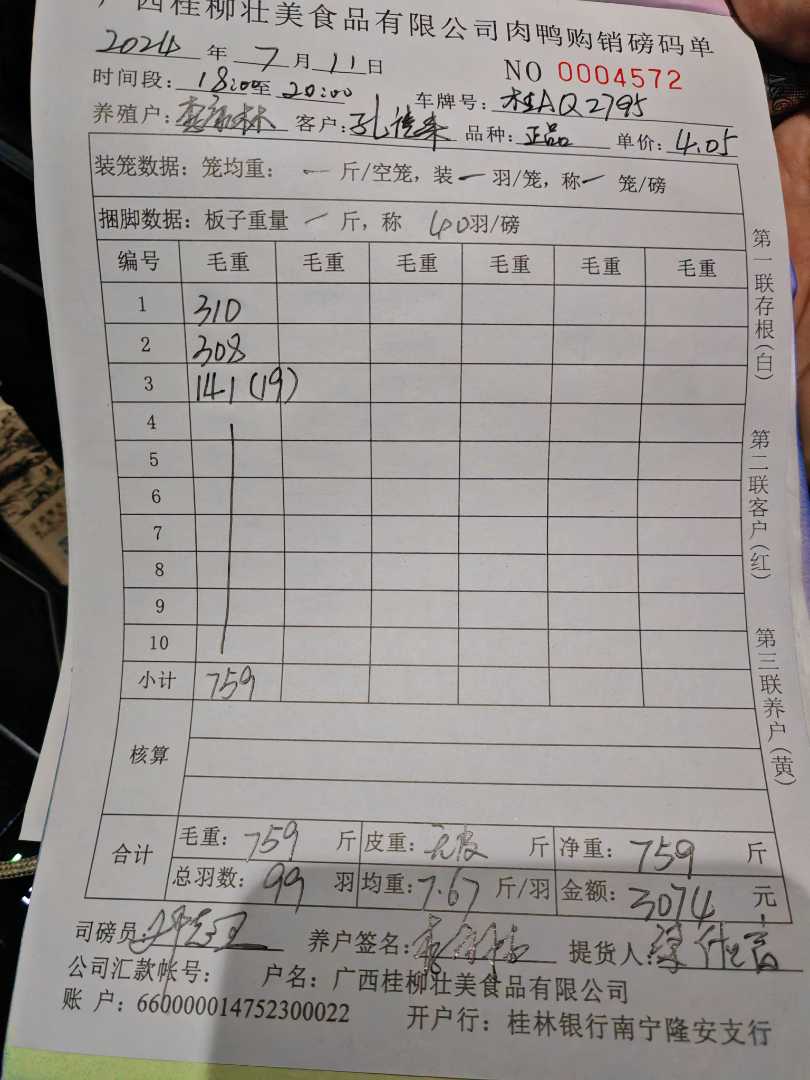 广西桂柳壮美食品有限公司肉鸭购销磅码单
2024 年 7 月 11 日 NO 0004572
时间段: 18:00至 20:00 车牌号: 桂AQ2795
养殖户: 林 客户: 孔 品种: 正品 单价: 4.05
装笼数据: 笼均重: 一 斤/空笼, 装 一 羽/笼, 称 一 笼/磅
捆脚数据: 板子重量 一 斤, 称 40羽/磅
编号 毛重 毛重 毛重 毛重 毛重 毛重
1 310
2 308
3 141 (19)
4
5
6
7
8
9
10
小计 759
核算
合计 毛重: 759 斤 皮重: 斤 净重: 759 斤
总羽数: 99 羽 均重: 7.67 斤/羽 金额: 3074 元
司磅员: 养户签名: 提货人:
公司汇款帐号: 户名: 广西桂柳壮美食品有限公司
账 户: 660000014752300022 开户行: 桂林银行南宁隆安支行
第一联存根(白)
第二联客户(红)
第三联养户(黄)